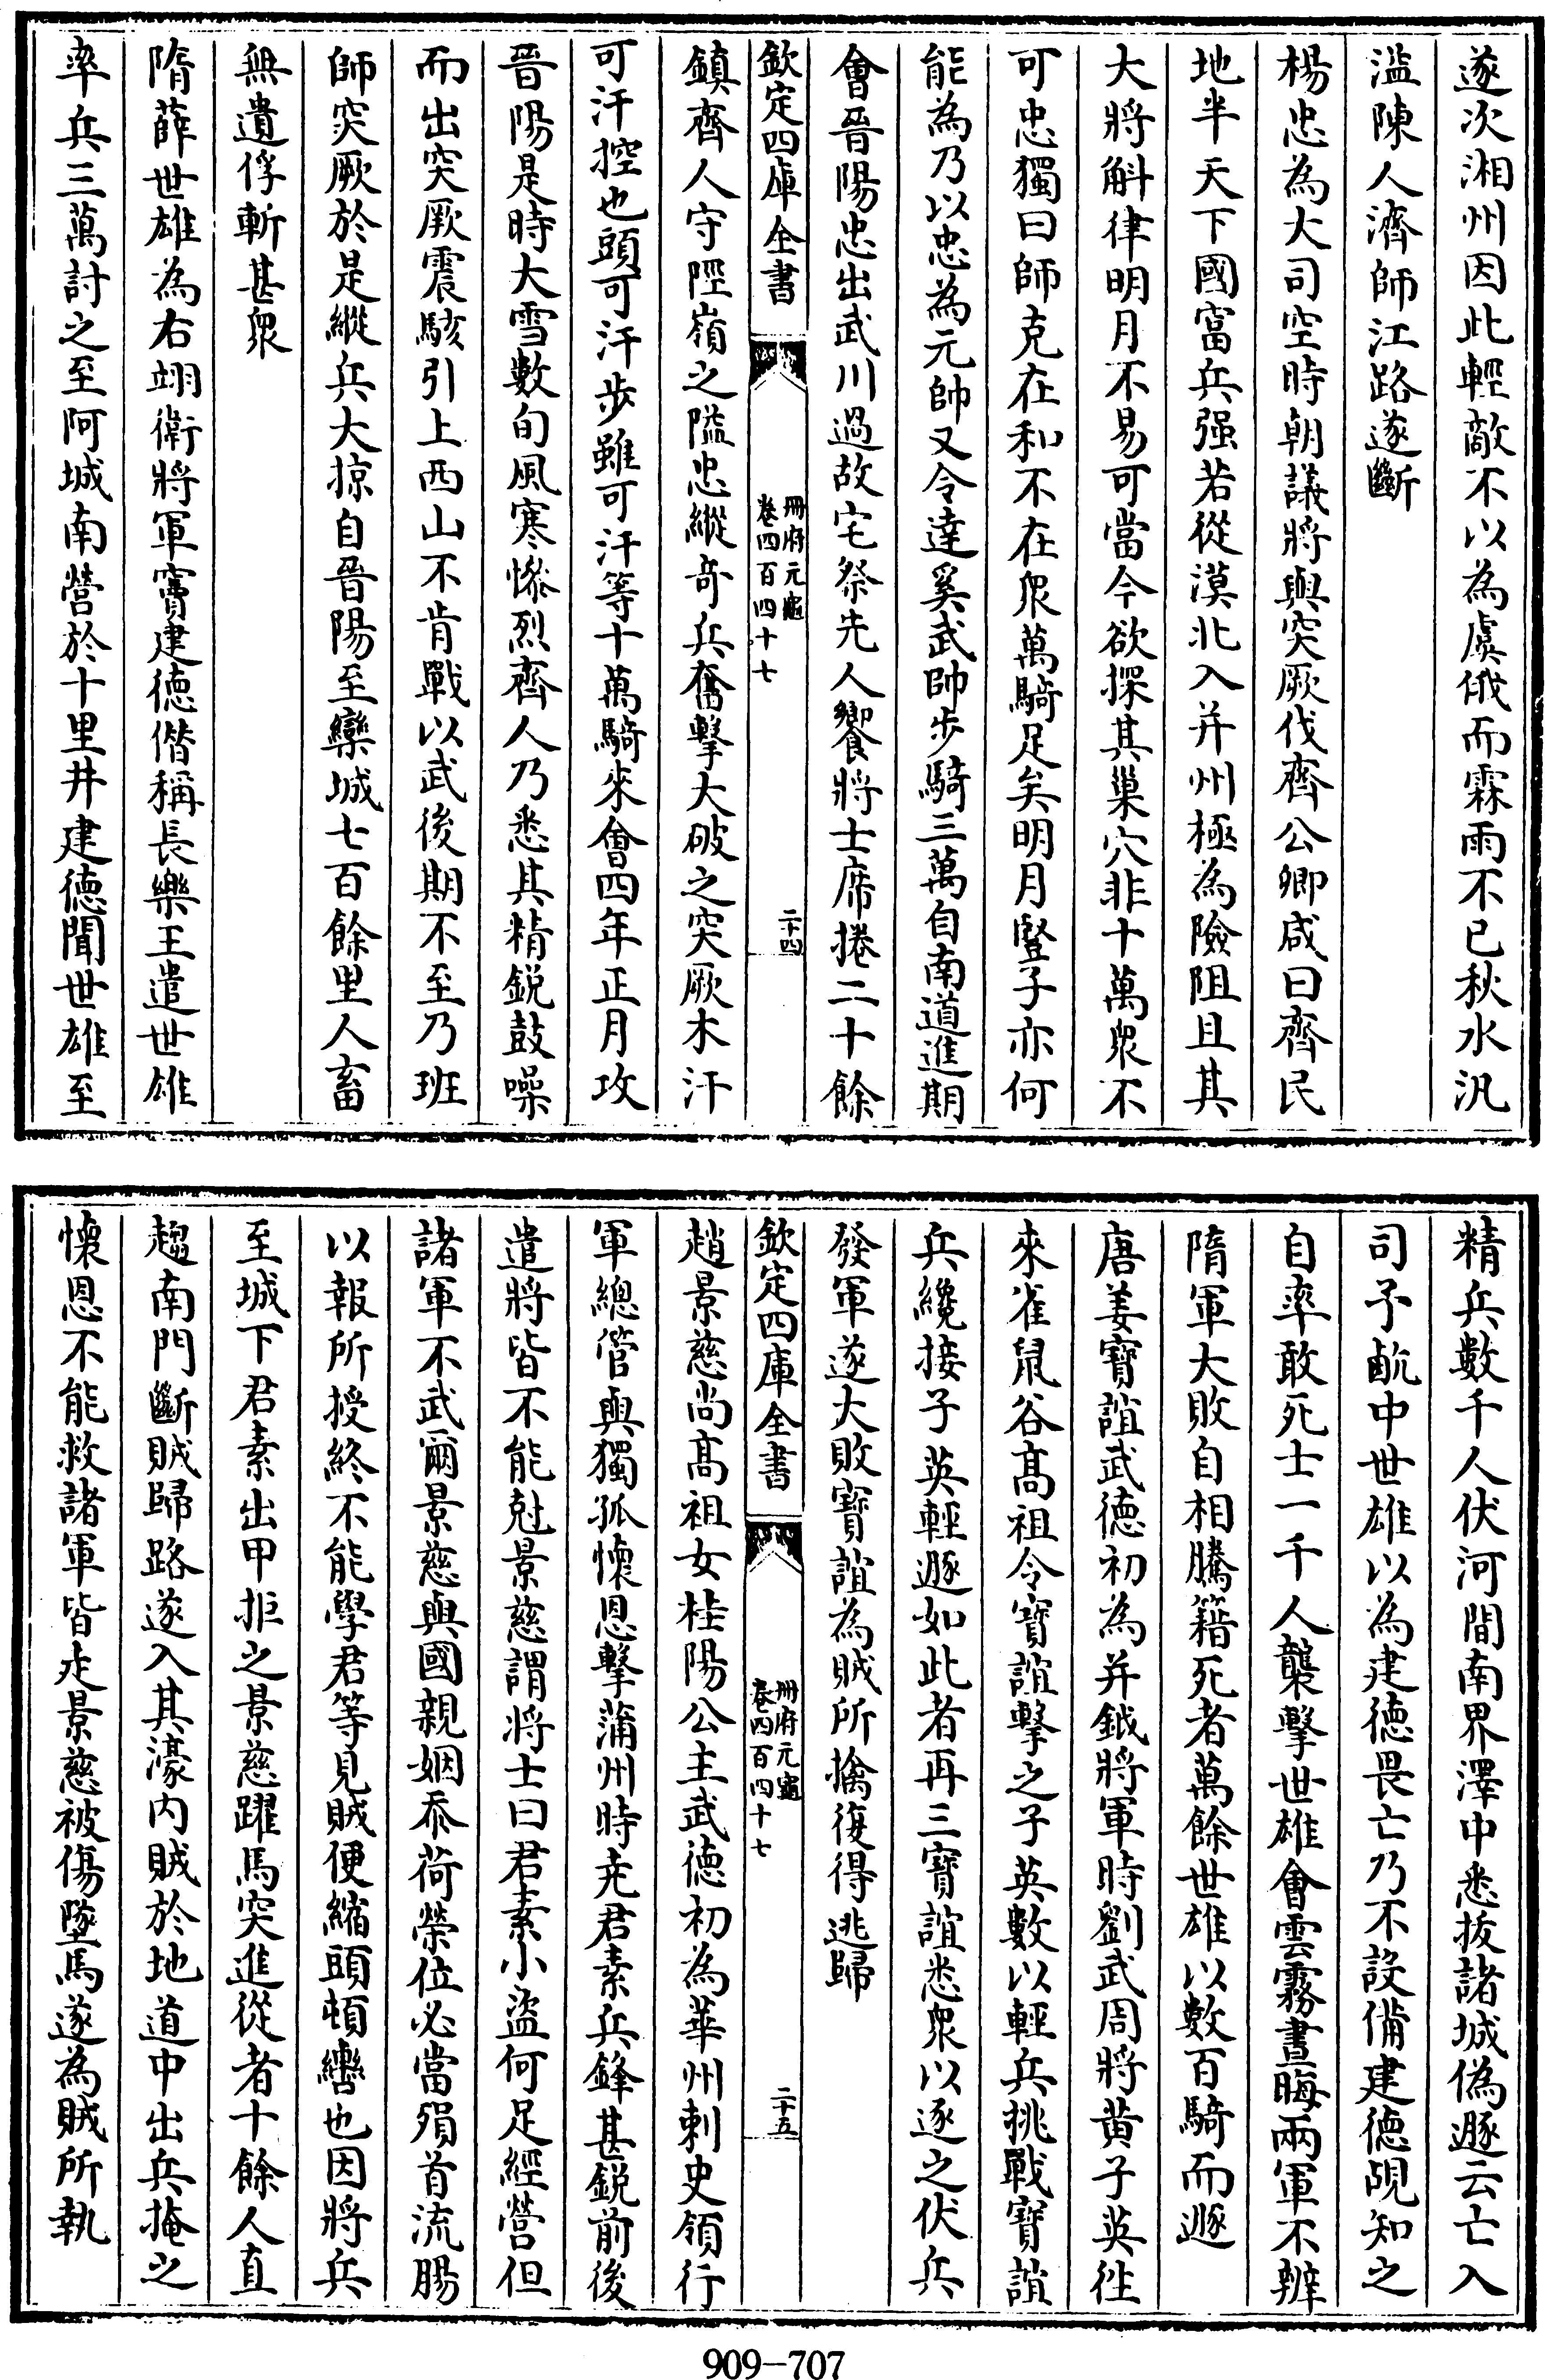 遂次湘州因此輕敵不以為虞俄而霖雨不已秋水汎
溢陳人濟師江路遂斷
楊忠為大司空時朝議將與突厥伐齊公卿咸曰齊民
地半天下國富兵强若從漠北入并州極為險阻且其
大將斛律明月不易可當今欲探其巢穴非十萬衆不
可忠獨曰師克在和不在衆萬騎足矣明月豎子亦何
能為乃以忠為元帥又令達奚武帥步騎三萬自南道進期
會晉陽忠出武川過故宅祭先人饗將士席捲二十餘
欽定四庫全書
冊府元龜
卷四百四十七
二十四
鎮齊人守陘嶺之隘忠縱奇兵奮擊大破之突厥木汗
可汗控也頭可汗步雖可汗等十萬騎來會四年正月攻
晉陽是時大雪數旬風寒慘烈齊人乃悉其精銳鼓噪
而出突厥震駭引上西山不肯戰以武後期不至乃班
師突厥於是縱兵大掠自晉陽至欒城七百餘里人畜
無遺俘斬甚衆
隋薛世雄為右翊衛將軍竇建徳僭稱長樂王遣世雄
率兵三萬討之至阿城南營於十里井建徳聞世雄至
精兵數千人伏河間南界澤中悉拔諸城偽遯云亡入
司予䴚中世雄以為建徳畏亡乃不設備建徳覘知之
自率敢死士一千人襲擊世雄會雲霧晝晦兩軍不辨
隋軍大敗自相騰籍死者萬餘世雄以數百騎而遯
唐姜寶誼武徳初為并鉞將軍時劉武周將黄子英往
來雀鼠谷髙祖令寶誼擊之子英數以輕兵挑戰寶誼
兵纔接子英輕遯如此者再三寶誼悉衆以逐之伏兵
發軍遂大敗寶誼為賊所擒復得逃歸
欽定四庫全書
冊府元龜
卷四百四十七
二十五
趙景慈尚髙祖女桂陽公主武徳初為華州刺史領行
軍總管與獨孤懷恩擊蒲州時尭君素兵鋒甚銳前後
遣將皆不能尅景慈謂將士曰君素小盜何足經營但
諸軍不武爾景慈與國親姻忝荷榮位必當殞首流腸
以報所授終不能學君等見賊便縮頭頓轡也因將兵
至城下君素出甲拒之景慈躍馬突進從者十餘人直
趨南門斷賊歸路遂入其濠内賊於地道中出兵掩之
懷恩不能救諸軍皆走景慈被傷墜馬遂為賊所執
909-707